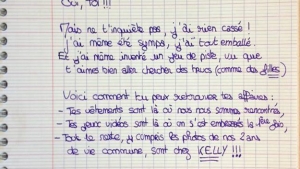 Oui, toi !!!
Mais ne t'inquiète pas, j'ai rien cassé !
j'ai même été sympa, j'ai tout emballé
Et j'ai même inventé un jeu de piste, vu que
t'aimes bien aller chercher des trucs (comme des filles)
Voici comment tu peux retrouver tes affaires :
- Tes vêtements sont là où nous nous sommes rencontrés,
- Tes jeux vidéos sont là où on s'est embrassés la 1ère fois,
- Tout le reste, y compris les photos de nos 2 ans
de vie commune, sont chez KELLY !!!